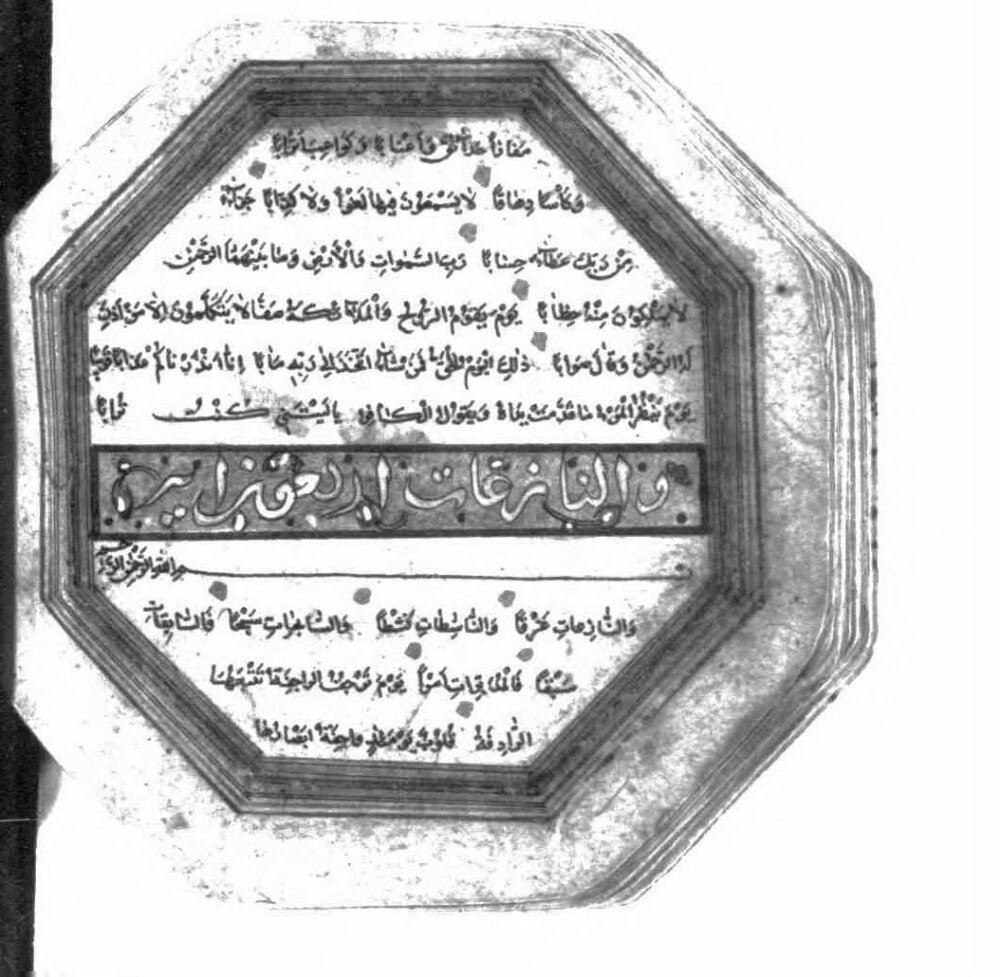 مفازا حدائق وأعنابا وكواعب أترابا
وكأسا دهاقا لا يسمعون فيها لغوا ولا كذابا جزاء
من ربك عطاء حسابا رب السموات والأرض وما بينهما الرحمن
لا يملكون منه خطابا يوم يقوم الروح والملائكة صفا لا يتكلمون إلا من أذن
له الرحمن وقال صوابا ذلك اليوم الحق فمن شاء اتخذ إلى ربه مآبا إنا أنذرناكم عذابا قريبا
يوم ينظر المرء ما قدمت يداه ويقول الكافر يا ليتني كنت ترابا
والنازعات اربعون اية
بسم الله الرحمن الرحيم
والنازعات غرقا والناشطات نشطا والسابحات سبحا فالسابقات
سبقا فالمدبرات أمرا يوم ترجف الراجفة تتبعها
الرادفة قلوب يومئذ واجفة أبصارها